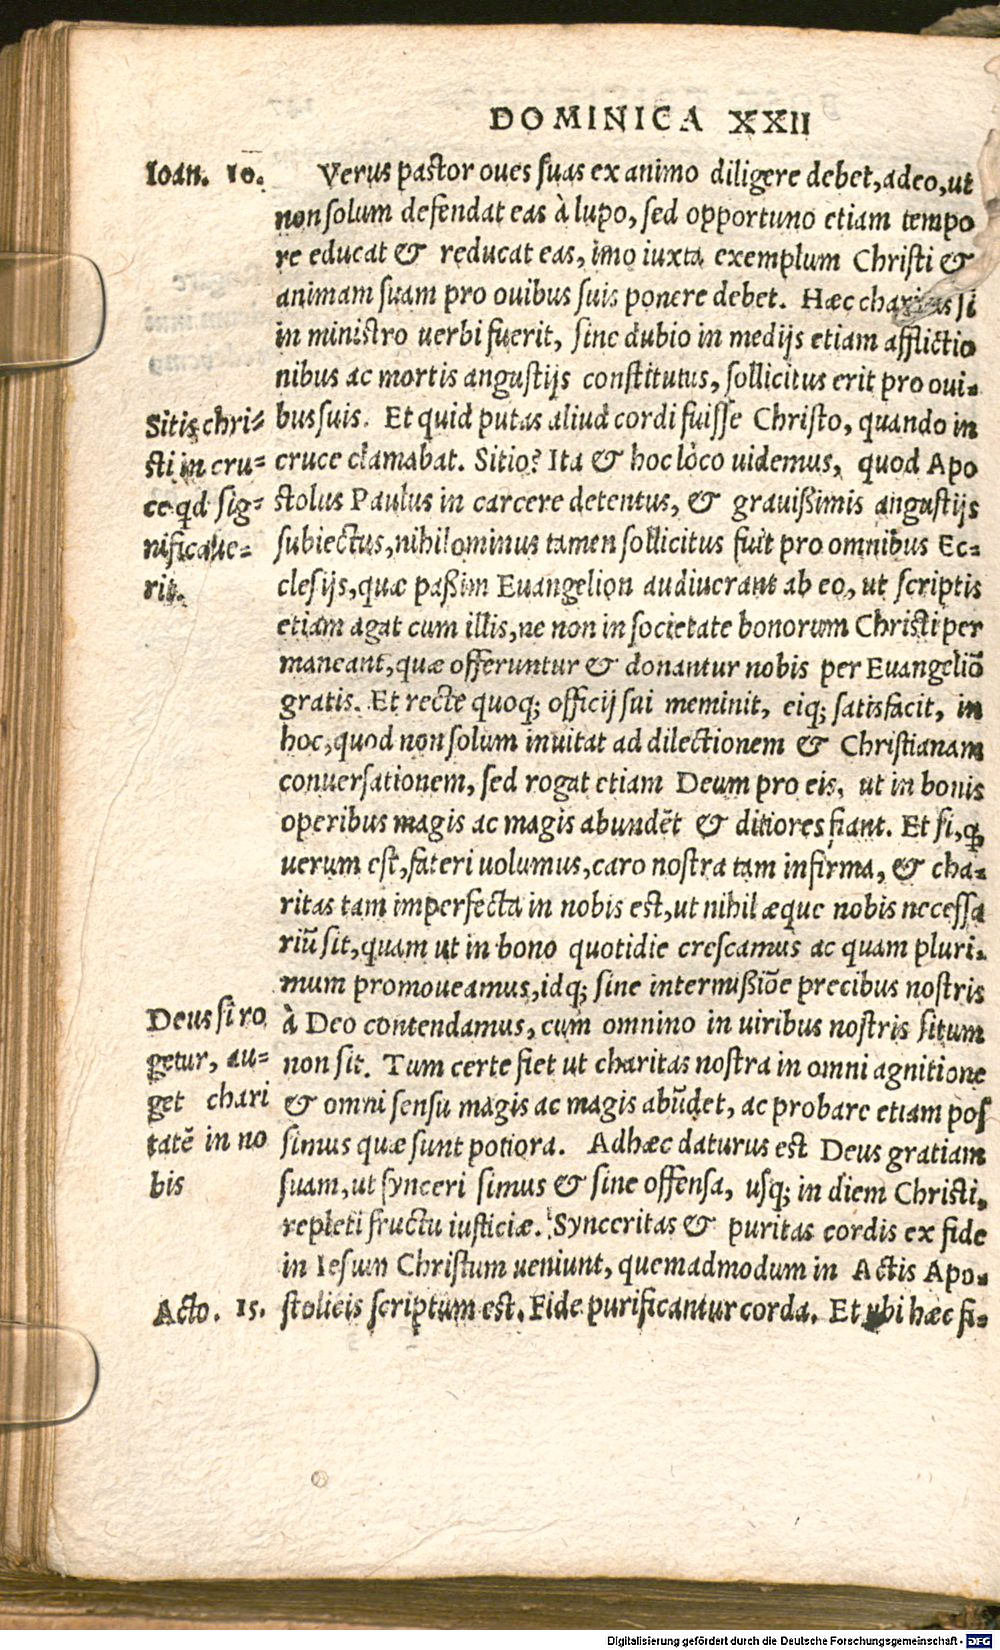 DOMINICA XXII
Ioan. 10.
Verus pastor oues suas ex animo diligere debet, adeo, ut
non solum defendat eas à lupo, sed opportuno etiam tempo
re educat & reducat eas, imo iuxta exemplum Christi &
animam suam pro ouibus suis ponere debet. Hæc charitas si
in ministro uerbi fuerit, sine dubio in medijs etiam afflictio
nibus ac mortis angustijs constitutus, sollicitus erit pro oui-
Sitis chri-
sti in cru-
ce qd sig-
nificaue-
rit.
bus suis. Et quid putas aliud cordi fuisse Christo, quando in
cruce clamabat. Sitio? Ita & hoc loco uidemus, quod Apo
stolus Paulus in carcere detentus, & grauißimis angustijs
subiectus, nihilominus tamen sollicitus fuit pro omnibus Ec-
clesijs, quæ paßim Euangelion audiuerant ab eo, ut scriptis
etiam agat cum illis, ne non in societate bonorum Christi per
maneant, quæ offeruntur & donantur nobis per Euangeliō
gratis. Et recte quoq; officij sui meminit, eiq; satisfacit, in
hoc, quod non solum inuitat ad dilectionem & Christianam
conuersationem, sed rogat etiam Deum pro eis, ut in bonis
operibus magis ac magis abundēt & ditiores fiant. Et si, ꝙ
uerum est, fateri uolumus, caro nostra tam infirma, & cha-
ritas tam imperfecta in nobis est, ut nihil æque nobis necessa
riū sit, quam ut in bono quotidie crescamus ac quam pluri-
mum promoueamus, idq; sine intermißiōe precibus nostris
Deus si ro
getur, au-
get chari
tatē in no
bis
à Deo contendamus, cum omnino in uiribus nostris situm
non sit. Tum certe fiet ut charitas nostra in omni agnitione
& omni sensu magis ac magis abūdet, ac probare etiam pos
simus quæ sunt potiora. Adhæc daturus est Deus gratiam
suam, ut synceri simus & sine offensa, usq; in diem Christi,
repleti fructu iusticiæ. Synceritas & puritas cordis ex fide
in Iesum Christum ueniunt, quemadmodum in Actis Apo-
Acto. 15.
stolicis scriptum est. Fide purificantur corda. Et ubi hæc fi-
Digitalisierung gefördert durch die Deutsche Forschungsgemeinschaft - DFG